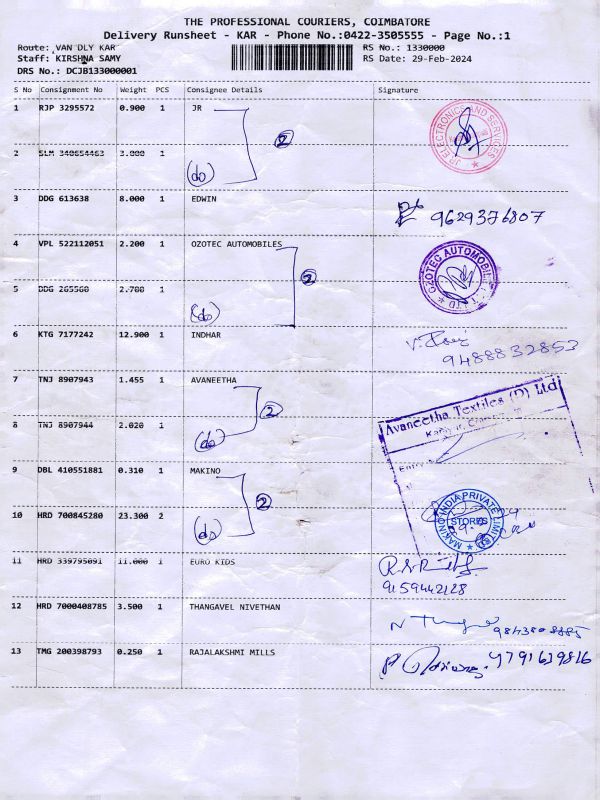 THE PROFESSIONAL COURIERS, COIMBATORE
Delivery Runsheet - KAR - Phone No.:0422-3505555 - Page No.:1
Route: VAN DLY KAR RS No.: 1330000
Staff: KIRSHNA SAMY RS Date: 29-Feb-2024
DRS No.: DCJB133000001
S No Consignment No Weight PCS Consignee Details Signature
1 RJP 3295572 0.900 1 JR
2
JP ELECTRONICS AND SERVICES
2 SLM 340654463 3.000 1 (do)
3 DDG 613638 8.000 1 EDWIN 9629376807
4 VPL 522112051 2.200 1 OZOTEC AUTOMOBILES
2
OZOTEC AUTOMOBIL LTD
5 DDG 265560 2.700 1 (do)
6 KTG 7177242 12.900 1 INDHAR
9488832853
7 TNJ 8907943 1.455 1 AVANEETHA
2
Avaneetha Textiles (P) Ltd
8 TNJ 8907944 2.020 1 (do)
9 DBL 410551881 0.310 1 MAKINO
2
MAKINO INDIA PRIVATE LIMITED
STORES
10 HRD 700845280 23.300 2 (do)
11 HRD 339795091 11.000 1 EURO KIDS
9159442128
12 HRD 7000408785 3.500 1 THANGAVEL NIVETHAN
13 TMG 200398793 0.250 1 RAJALAKSHMI MILLS 9791639816